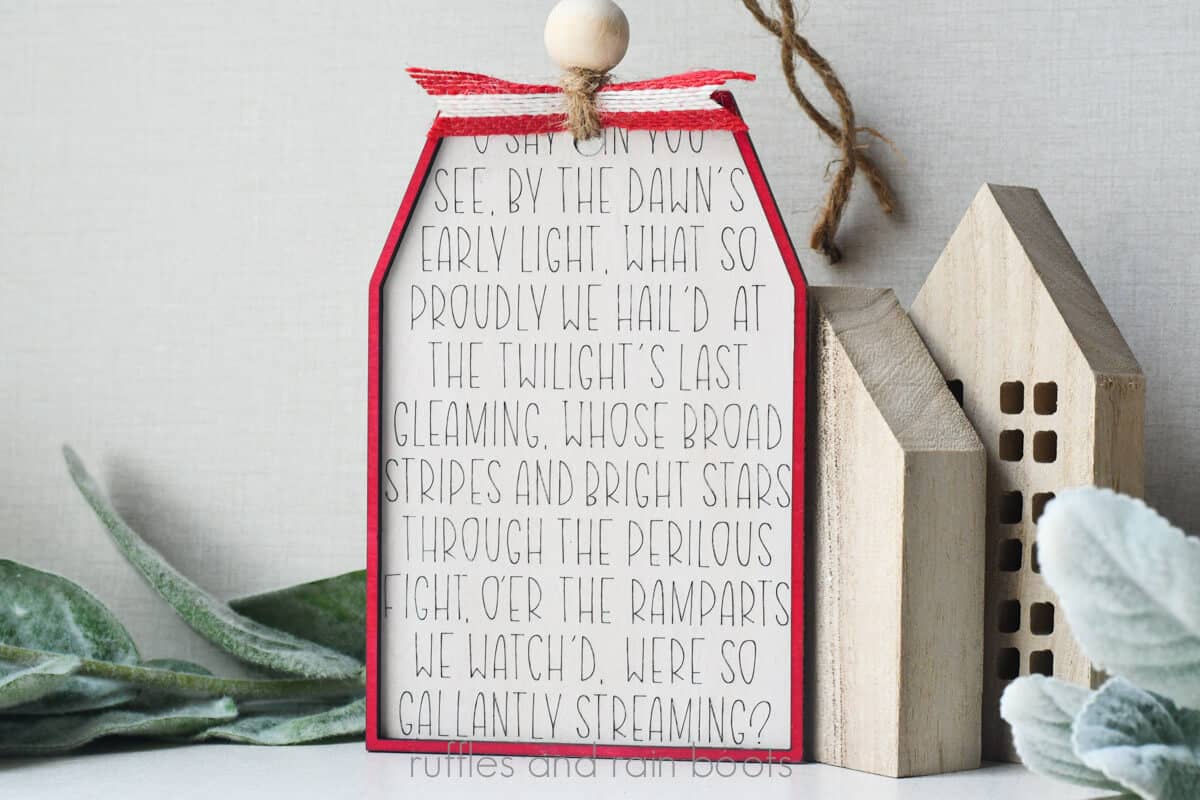 O SAY IN YOU
SEE, BY THE DAWN'S
EARLY LIGHT, WHAT SO
PROUDLY WE HAIL'D AT
THE TWILIGHT'S LAST
GLEAMING, WHOSE BROAD
STRIPES AND BRIGHT STARS
THROUGH THE PERILOUS
FIGHT, O'ER THE RAMPARTS
WE WATCH'D, WERE SO
GALLANTLY STREAMING?
ruffles and rain boots